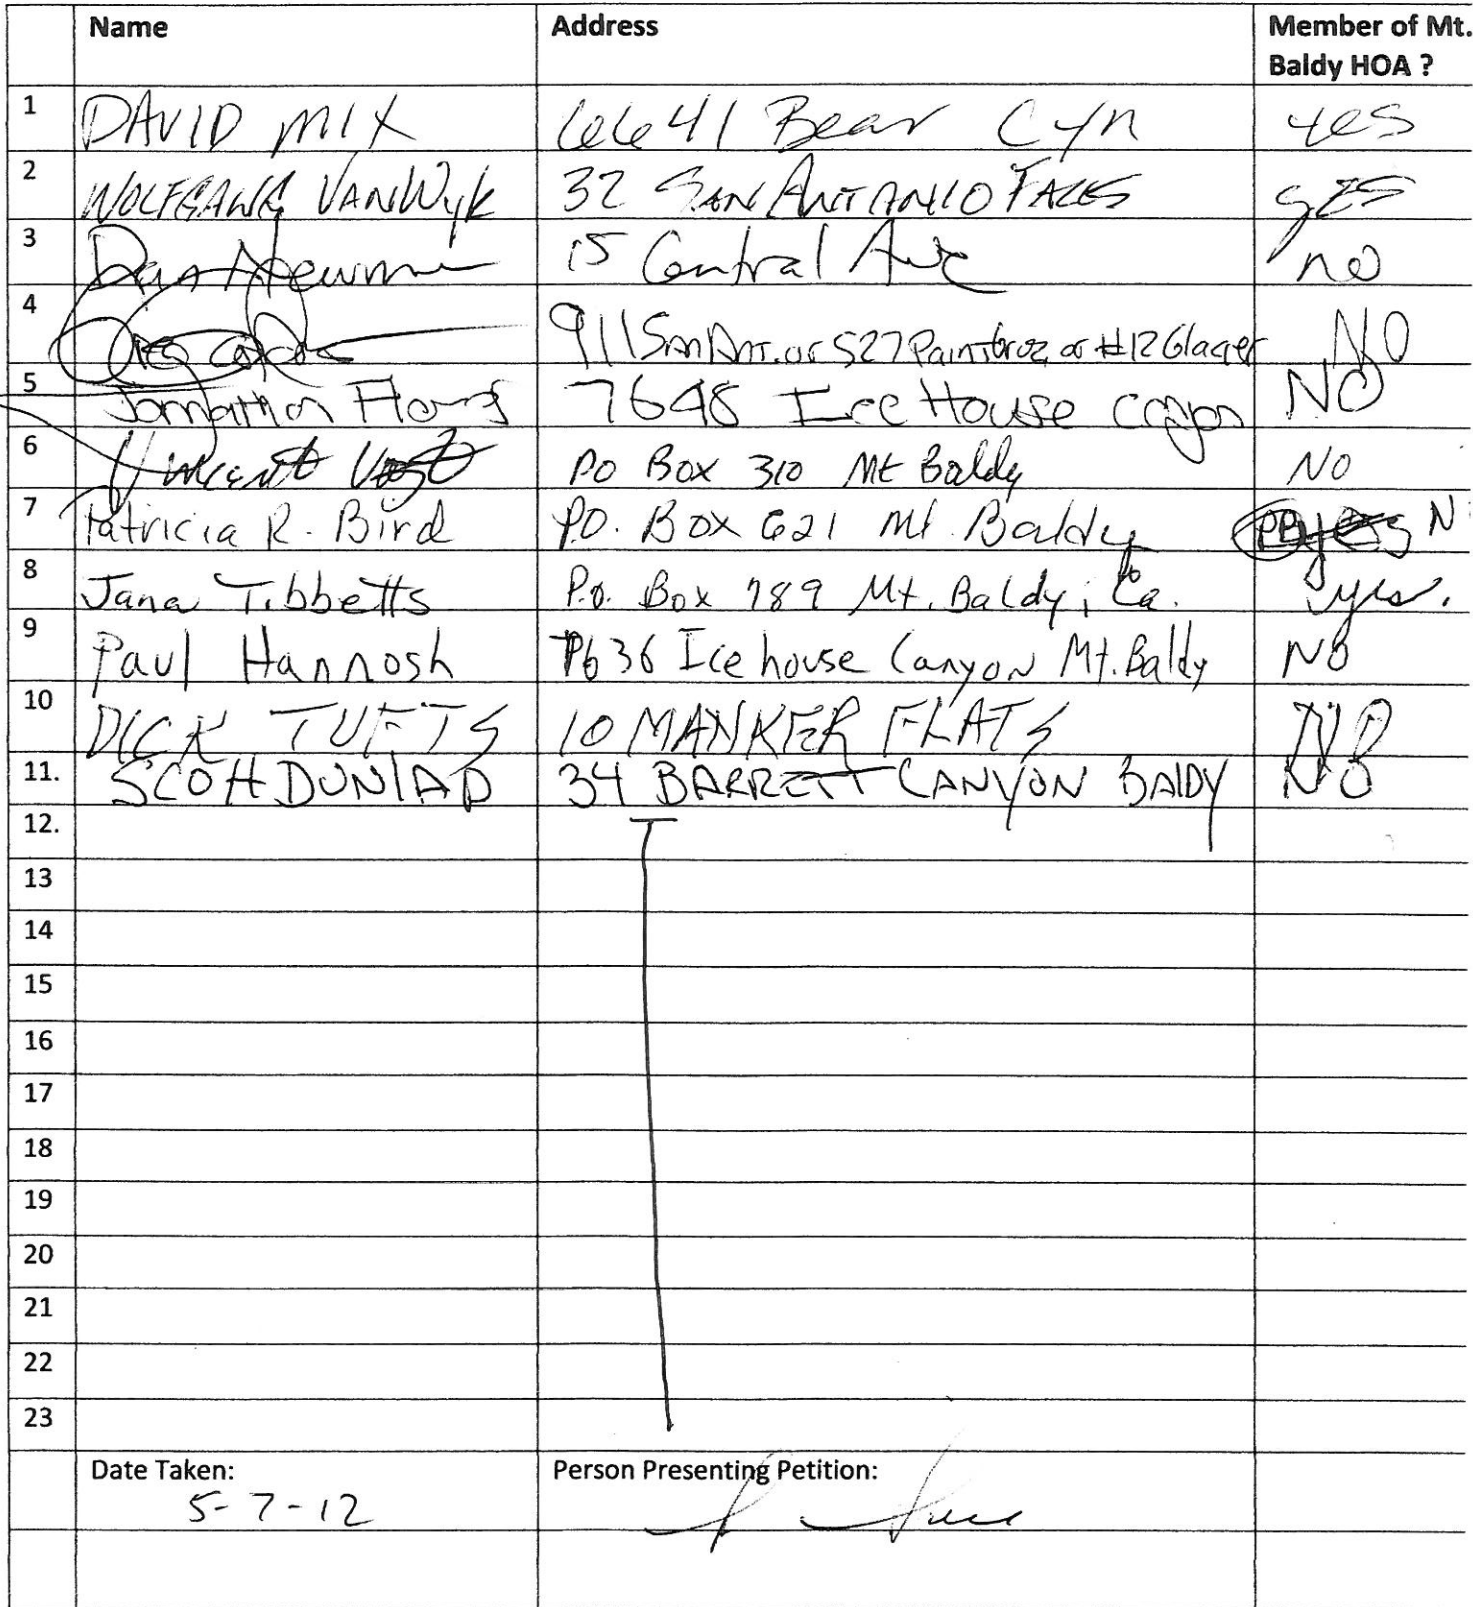 Name Address Member of Mt.
Baldy HOA ?
1 DAVID MIX 6641 Bear Cyn yes
2 WOLFGANG VANWyk 32 SAN ANTONIO FALLS yES
3 Dan Newman 15 Central Ave no
4 911 San Ant. or 527 Paintbroz or #12 Glacier NO
5 Jonathon 7648 Ice House canyon NO
6 Vincent PO BOX 310 Mt Baldy NO
7 Patricia R. Bird P.O. Box 621 Mt. Baldy PB yes N
8 Jana Tibbetts P.O. Box 789 Mt. Baldy, Ca. yes.
9 Paul Hannosh 7636 Icehouse Canyon Mt. Baldy NO
10 DICK TUFTS 10 MANKER FLATS NO
11. SCOTT DUNLAP 34 BARRETT CANYON BALDY NO
12.
13
14
15
16
17
18
19
20
21
22
23
Date Taken: Person Presenting Petition:
5-7-12